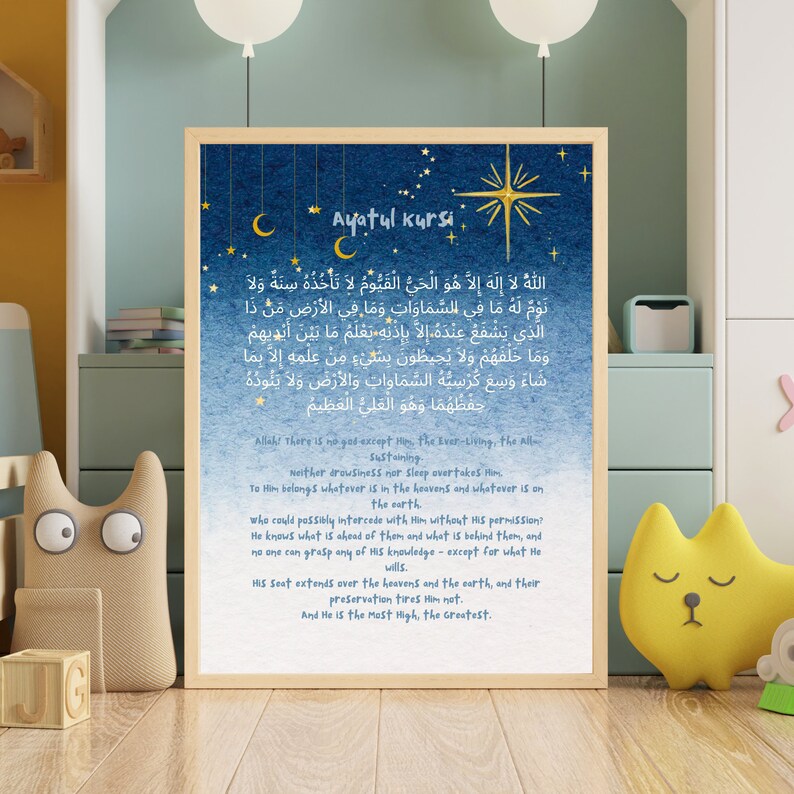 Ayatul Kursi
اللَّهُ لاَ إِلَهَ إِلاَّ هُوَ الْحَيُّ الْقَيُّومُ لاَ تَأْخُذُهُ سِنَةٌ وَلاَ
نَوْمٌ لَهُ مَا فِي السَّمَاوَاتِ وَمَا فِي الأَرْضِ مَنْ ذَا
الَّذِي يَشْفَعُ عِنْدَهُ إِلاَّ بِإِذْنِهِ يَعْلَمُ مَا بَيْنَ أَيْدِيهِمْ
وَمَا خَلْفَهُمْ وَلاَ يُحِيطُونَ بِشَيْءٍ مِنْ عِلْمِهِ إِلاَّ بِمَا
شَاءَ وَسِعَ كُرْسِيُّهُ السَّمَاوَاتِ وَالأَرْضَ وَلاَ يَئُودُهُ
حِفْظُهُمَا وَهُوَ الْعَلِيُّ الْعَظِيمُ
Allah! There is no god except Him, the Ever-Living, the All-
Sustaining.
Neither drowsiness nor sleep overtakes Him.
To Him belongs whatever is in the heavens and whatever is on
the earth.
Who could possibly intercede with Him without His permission?
He knows what is ahead of them and what is behind them, and
no one can grasp any of His knowledge - except for what He
wills.
His Seat extends over the heavens and the earth, and their
preservation tires Him not.
And He is the Most High, the Greatest.
J G